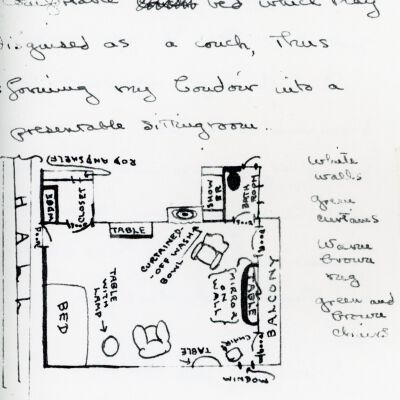 bed which may
disguised as a couch, thus
forming my boudoir into a
presentable sitting room.
ROD AND SHELF
CLOSET
SHOWER
BATH ROOM
HALL
DOOR
TABLE
CURTAINED-OFF WASH BOWL
MIRROR ON WALL
TABLE
BALCONY
TABLE WITH LAMP
BED
TABLE
CHAIR
WINDOW
white
walls
green
curtains
Warm
brown
rug
green and
brown
chairs